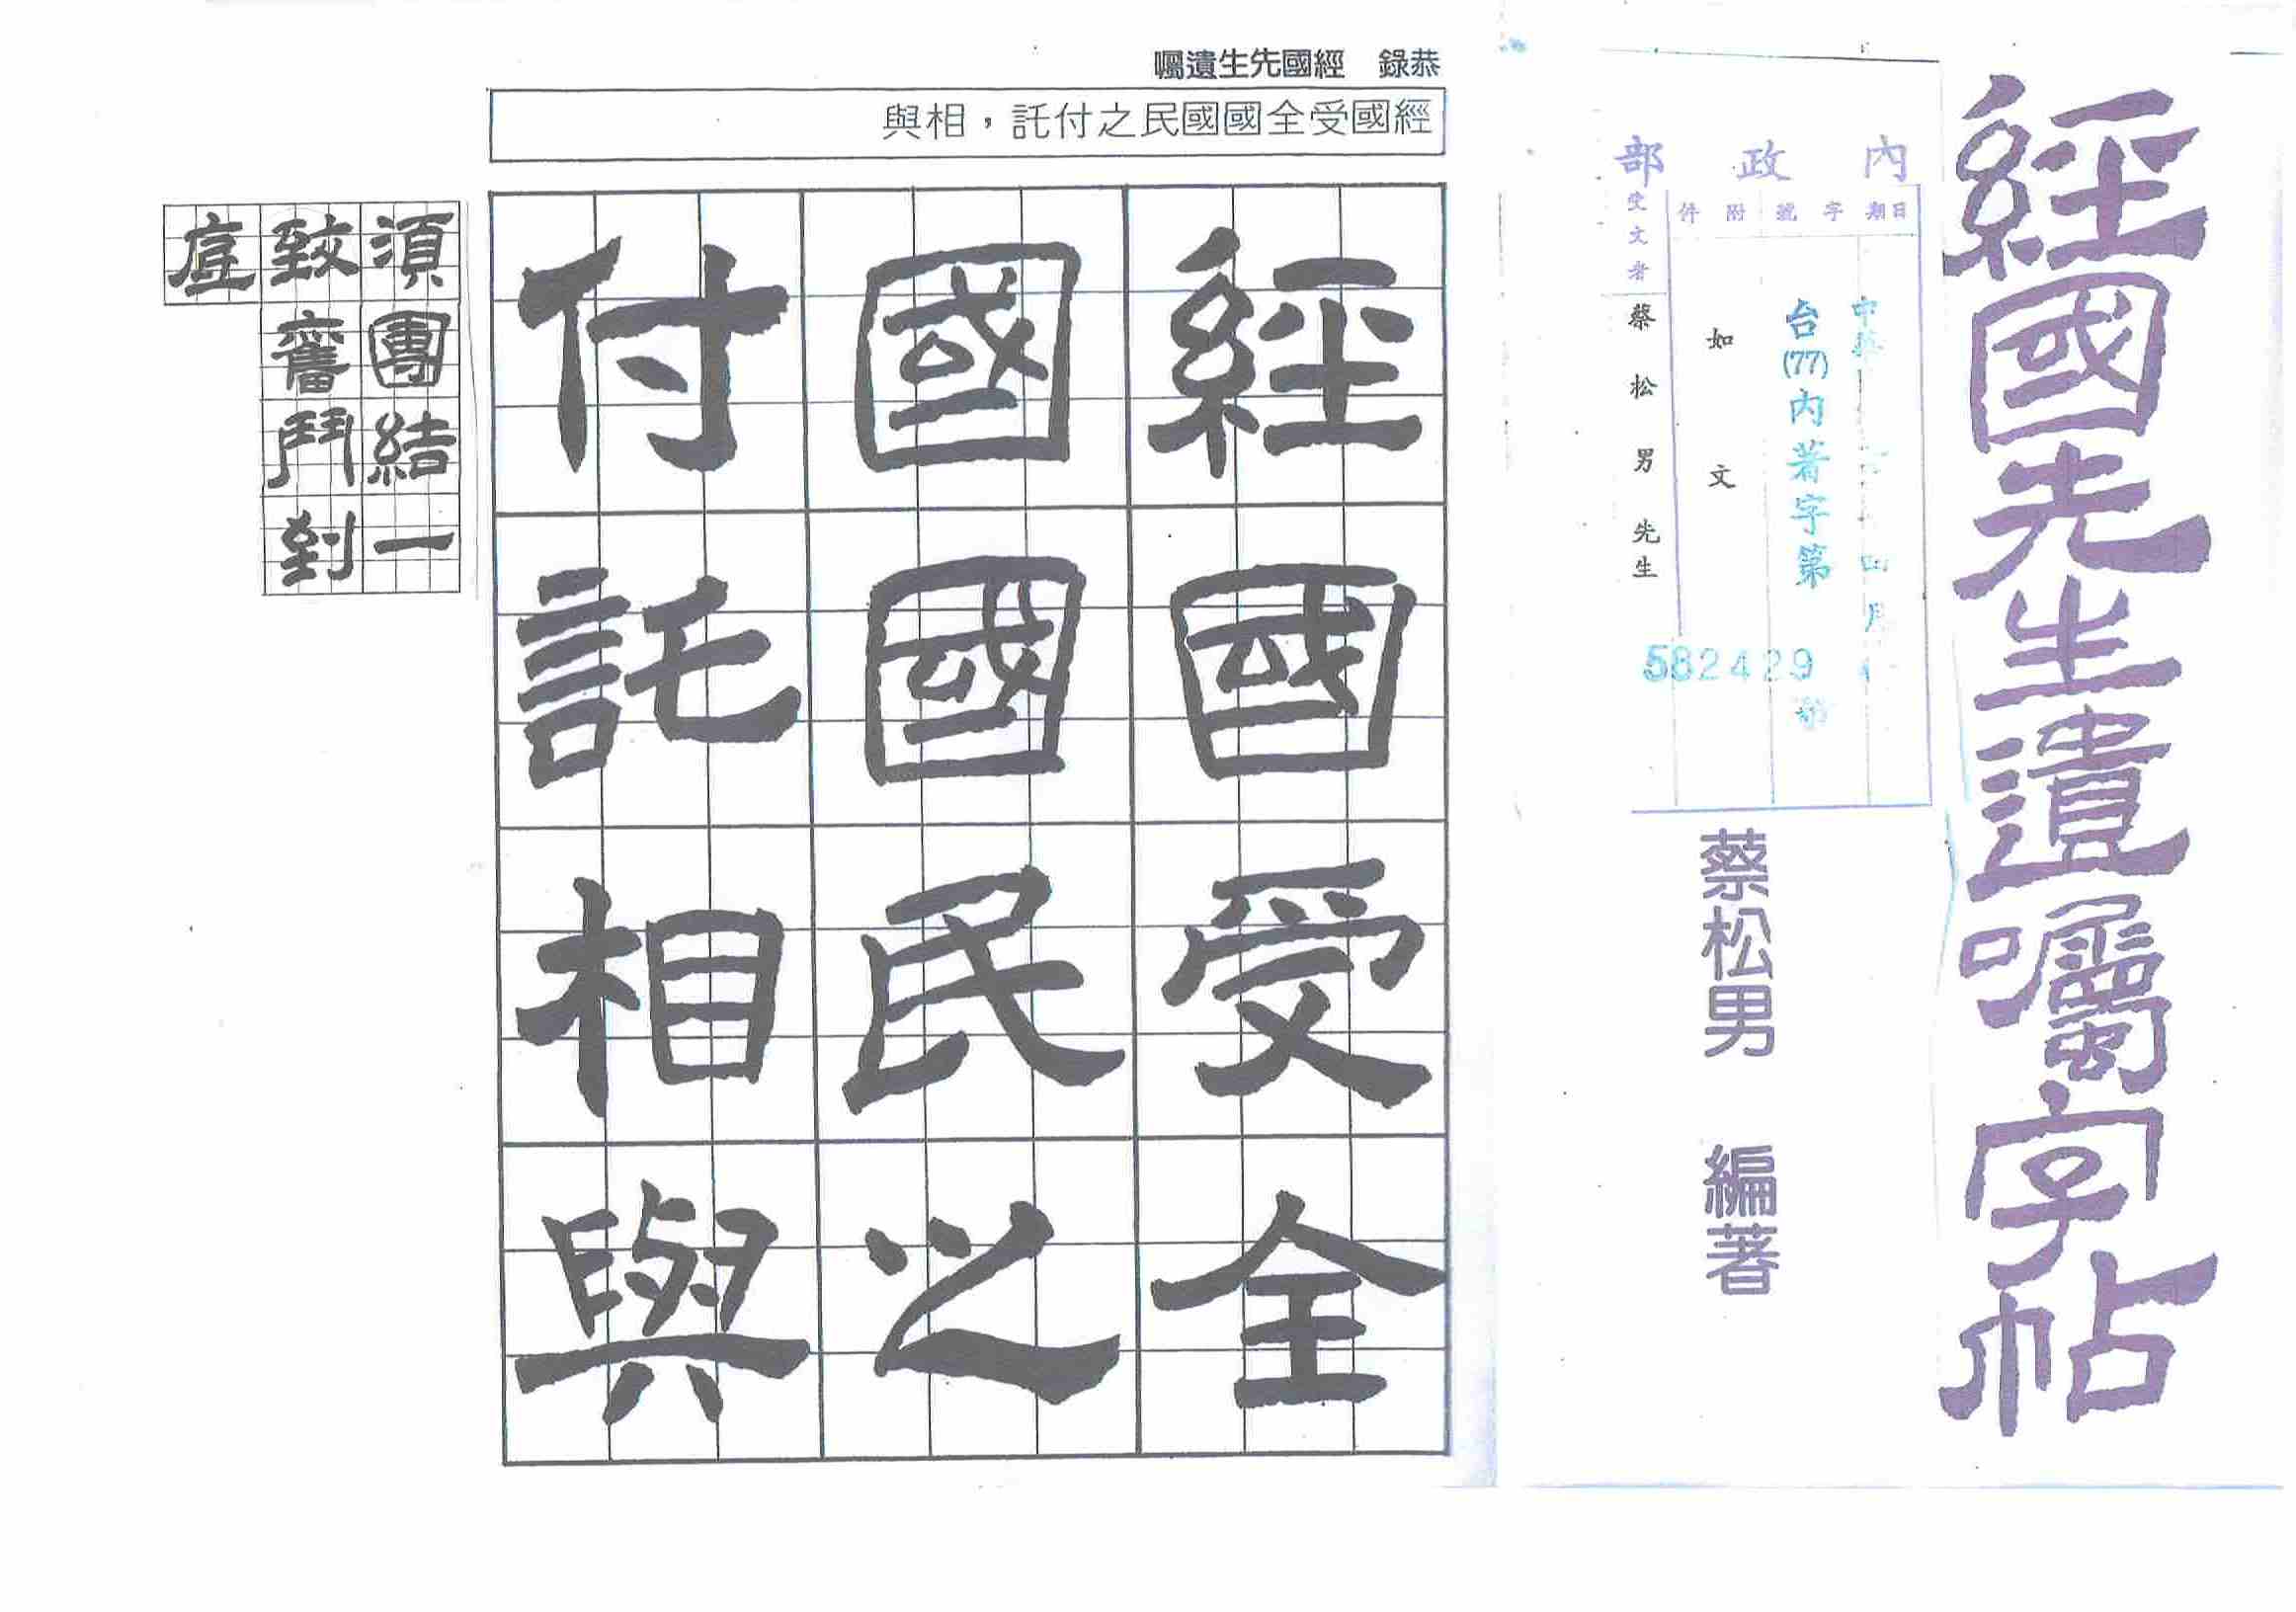 經國先生遺囑字帖
內政部
日期
字號
附件
受文者
中華
四
月
台(77)內著字第
582429
如文
蔡松男先生
蔡松男 編著
恭錄 經國先生遺囑
經國受全國國民之付託,相與
經國受全
國國民之
付託相與
須團結一
致奮鬥到
底